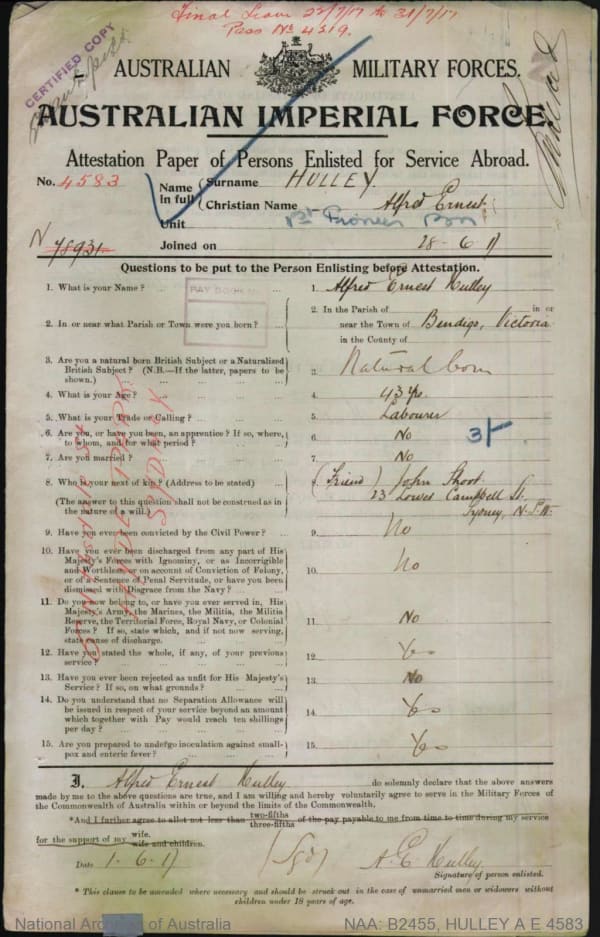 Final Leave 22/7/17 to 31/7/17
Pass No 4519.
CERTIFIED COPY
AUSTRALIAN MILITARY FORCES.
AUSTRALIAN IMPERIAL FORCE.
Attestation Paper of Persons Enlisted for Service Abroad.
No. 4583
Name in full { Surname HULLEY
Christian Name Alfred Ernest
Unit Pioneer Bn
Joined on 28-6-17
N 78931
Questions to be put to the Person Enlisting before Attestation.
1. What is your Name? 1. Alfred Ernest Hulley
PAY BOOK
2. In or near what Parish or Town were you born? 2. In the Parish of in or
near the Town of Bendigo, Victoria
in the County of
3. Are you a natural born British Subject or a Naturalized
British Subject? (N.B.—If the latter, papers to be
shown.) 3. Natural born
4. What is your Age? 4. 43 yrs.
5. What is your Trade or Calling? 5. Labourer
6. Are you, or have you been, an apprentice? If so, where,
to whom, and for what period? 6. No 3/-
7. Are you married? 7. No
8. Who is your next of kin? (Address to be stated) 8. (Friend) John
23 Lower Campbell St.
(The answer to this question shall not be construed as in
the nature of a will.) Sydney, N.S.W.
9. Have you ever been convicted by the Civil Power? 9. No
10. Have you ever been discharged from any part of His
Majesty's Forces with Ignominy, or as Incorrigible
and Worthless, or on account of Conviction of Felony,
or of a Sentence of Penal Servitude, or have you been
dismissed with Disgrace from the Navy? 10. No
11. Do you now belong to, or have you ever served in, His
Majesty's Army, the Marines, the Militia, the Militia
Reserve, the Territorial Force, Royal Navy, or Colonial
Forces? If so, state which, and if not now serving,
state cause of discharge. 11. No
12. Have you stated the whole, if any, of your previous
service? 12. Yes
13. Have you ever been rejected as unfit for His Majesty's
Service? If so, on what grounds? 13. No
14. Do you understand that no Separation Allowance will
be issued in respect of your service beyond an amount
which together with Pay would reach ten shillings
per day? 14. Yes
15. Are you prepared to undergo inoculation against small-
pox and enteric fever? 15. Yes
I, Alfred Ernest Hulley do solemnly declare that the above answers
made by me to the above questions are true, and I am willing and hereby voluntarily agree to serve in the Military Forces of
the Commonwealth of Australia within or beyond the limits of the Commonwealth.
*And I further agree to allot not less than two-fifths three-fifths of the pay payable to me from time to time during my service
for the support of my wife. wife and children.
Date 1.6.17 (Sgd) A. E. Hulley
Signature of person enlisted.
* This clause to be amended where necessary and should be struck out in the case of unmarried men or widowers without
children under 18 years of age.
National Archives of Australia NAA: B2455, HULLEY A E 4583